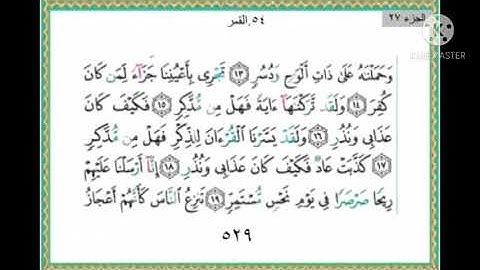 الجزء ٢٧
٥٤ القمر
KINEMASTER
وَحَمَلْنَٰهُ عَلَىٰ ذَاتِ أَلْوَٰحٍ وَدُسُرٍ ١٣ تَجْرِى بِأَعْيُنِنَا جَزَآءً لِّمَن كَانَ
كُفِرَ ١٤ وَلَقَد تَّرَكْنَٰهَآ ءَايَةً فَهَلْ مِن مُّدَّكِرٍ ١٥ فَكَيْفَ كَانَ
عَذَابِى وَنُذُرِ ١٦ وَلَقَدْ يَسَّرْنَا ٱلْقُرْءَانَ لِلذِّكْرِ فَهَلْ مِن مُّدَّكِرٍ
١٧ كَذَّبَتْ عَادٌ فَكَيْفَ كَانَ عَذَابِى وَنُذُرِ ١٨ إِنَّآ أَرْسَلْنَا عَلَيْهِمْ
رِيحًا صَرْصَرًا فِى يَوْمِ نَحْسٍ مُّسْتَمِرٍّ ١٩ تَنزِعُ ٱلنَّاسَ كَأَنَّهُمْ أَعْجَازُ
٥٢٩